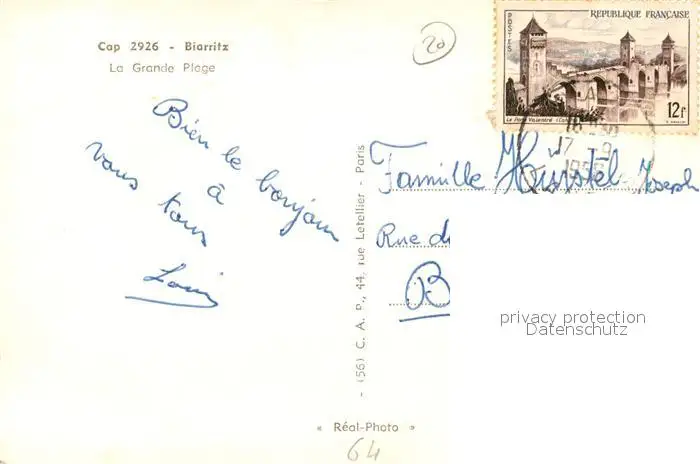 Cap 2926 - Biarritz
La Grande Plage
20
POSTES
REPUBLIQUE FRANÇAISE
Le Pont Valentré
12f
17 -9
Bien le bonjour
à
vous tous
Louis
(56) C. A. P., 44, rue Letellier - Paris
Famille Joseph
Rue d
B
privacy protection
Datenschutz
« Réal-Photo »
64